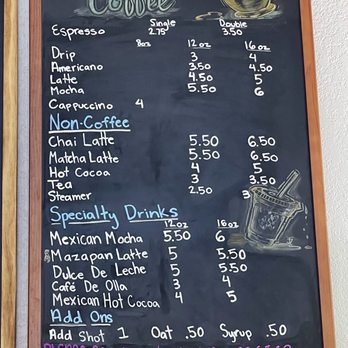 Coffee
Single Double
Espresso 2.75 3.50
8oz 12oz 16oz
Drip 3 4
Americano 3.50 4.50
Latte 4.50 5
Mocha 5.50 6
Cappuccino 4
Non-Coffee
Chai Latte 5.50 6.50
Matcha Latte 5.50 6.50
Hot Cocoa 4 5
Tea 3 3
Steamer 2.50
Specialty Drinks
12oz 16oz
Mexican Mocha 5.50 6
Mazapan Latte 5 5.50
Dulce De Leche 5 5.50
Café De Olla 3 4
Mexican Hot Cocoa 4 5
Add Ons
Add Shot 1 Oat .50 Syrup .50